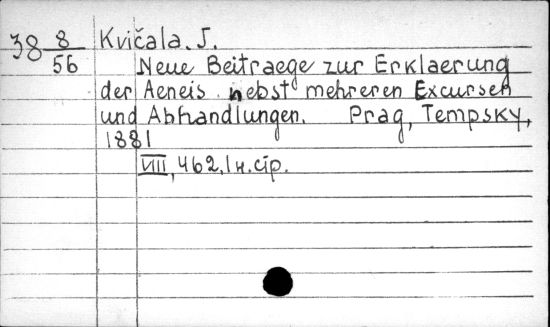 38 8/56 Kvičala. J.
Neue Beitraege zur Erklaerung
der Aeneis nebst mehreren Excursen
und Abhandlungen. Prag, Tempsky,
1881
VIII, 462, 1 н. стр.